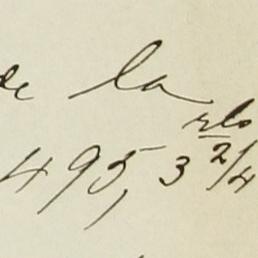 de la
rls
495,3 2/4